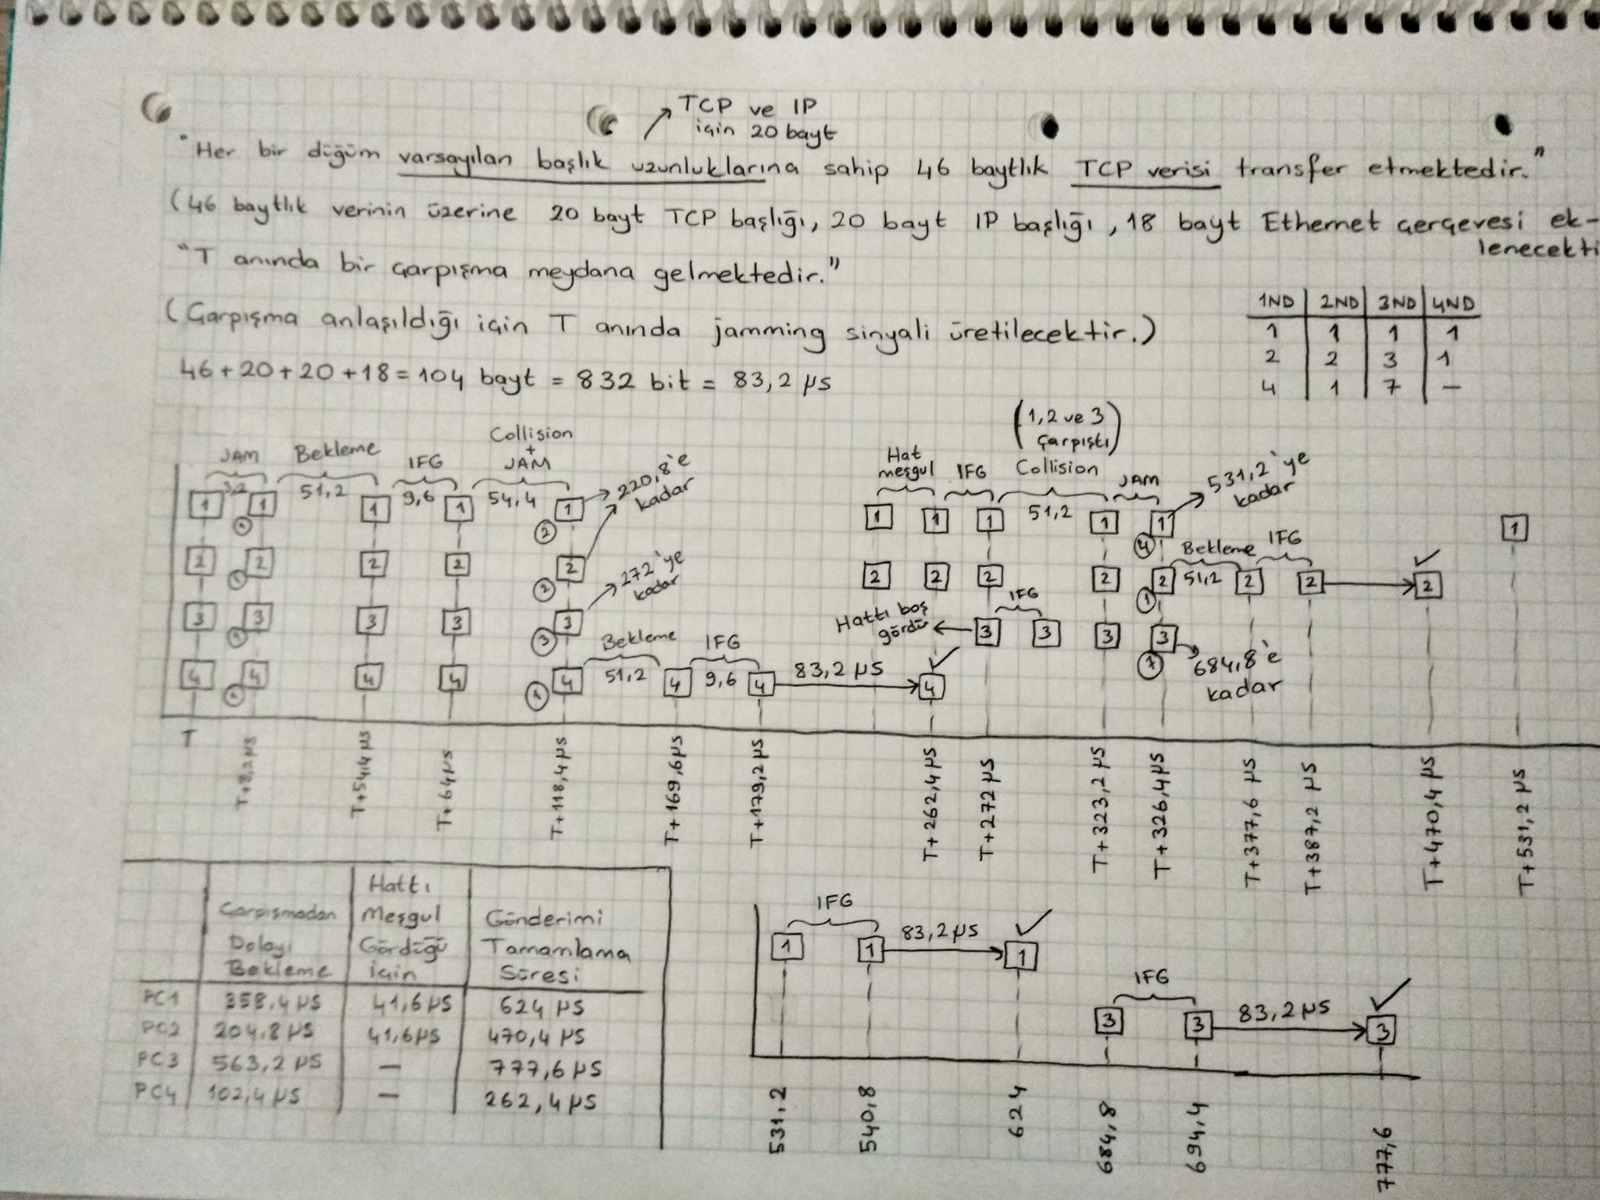 TCP ve IP
için 20 bayt
"Her bir düğüm varsayılan başlık uzunluklarına sahip 46 baytlık TCP verisi transfer etmektedir."
(46 baytlık verinin üzerine 20 bayt TCP başlığı, 20 bayt IP başlığı, 18 bayt Ethernet çerçevesi ek-
lenecekti
"T anında bir çarpışma meydana gelmektedir."
(Çarpışma anlaşıldığı için T anında jamming sinyali üretilecektir.)
46+20+20+18=104 bayt = 832 bit = 83,2 µs
1ND 2ND 3ND 4ND
1 1 1 1
2 2 3 1
4 1 7 -
JAM Bekleme IFG Collision + JAM
3,2 51,2 9,6 54,4
220,8'e kadar
272'ye kadar
Hat meşgul IFG Collision JAM
(1,2 ve 3 çarpıştı)
51,2
531,2'ye kadar
1 1 1 1 1 1 1 1 1 1 1
2 2 2
4
Bekleme IFG
51,2
2 2 2 2 2 2 2 2 2 2 2 2 2
1 1
Hattı boş gördü
IFG
3 3 3 3 3 3 3 3 3
3 7
684,8'e kadar
Bekleme IFG
51,2 9,6 83,2 µs
4 4 4 4 4 4 4 4
1
T
T+54,4 µs
T+64 µs
T+118,4 µs
T+169,6 µs
T+179,2 µs
T+262,4 µs
T+272 µs
T+323,2 µs
T+326,4 µs
T+377,6 µs
T+387,2 µs
T+470,4 µs
T+531,2 µs
Çarpışmadan Dolayı Bekleme
Hattı Meşgul Gördüğü için
Gönderimi Tamamlama Süresi
PC1 358,4 µs 41,6 µs 624 µs
PC2 204,8 µs 41,6 µs 470,4 µs
PC3 563,2 µs - 777,6 µs
PC4 102,4 µs - 262,4 µs
IFG
1 1 83,2 µs 1
IFG
3 3 83,2 µs 3
531,2
540,8
624
684,8
694,4
777,6